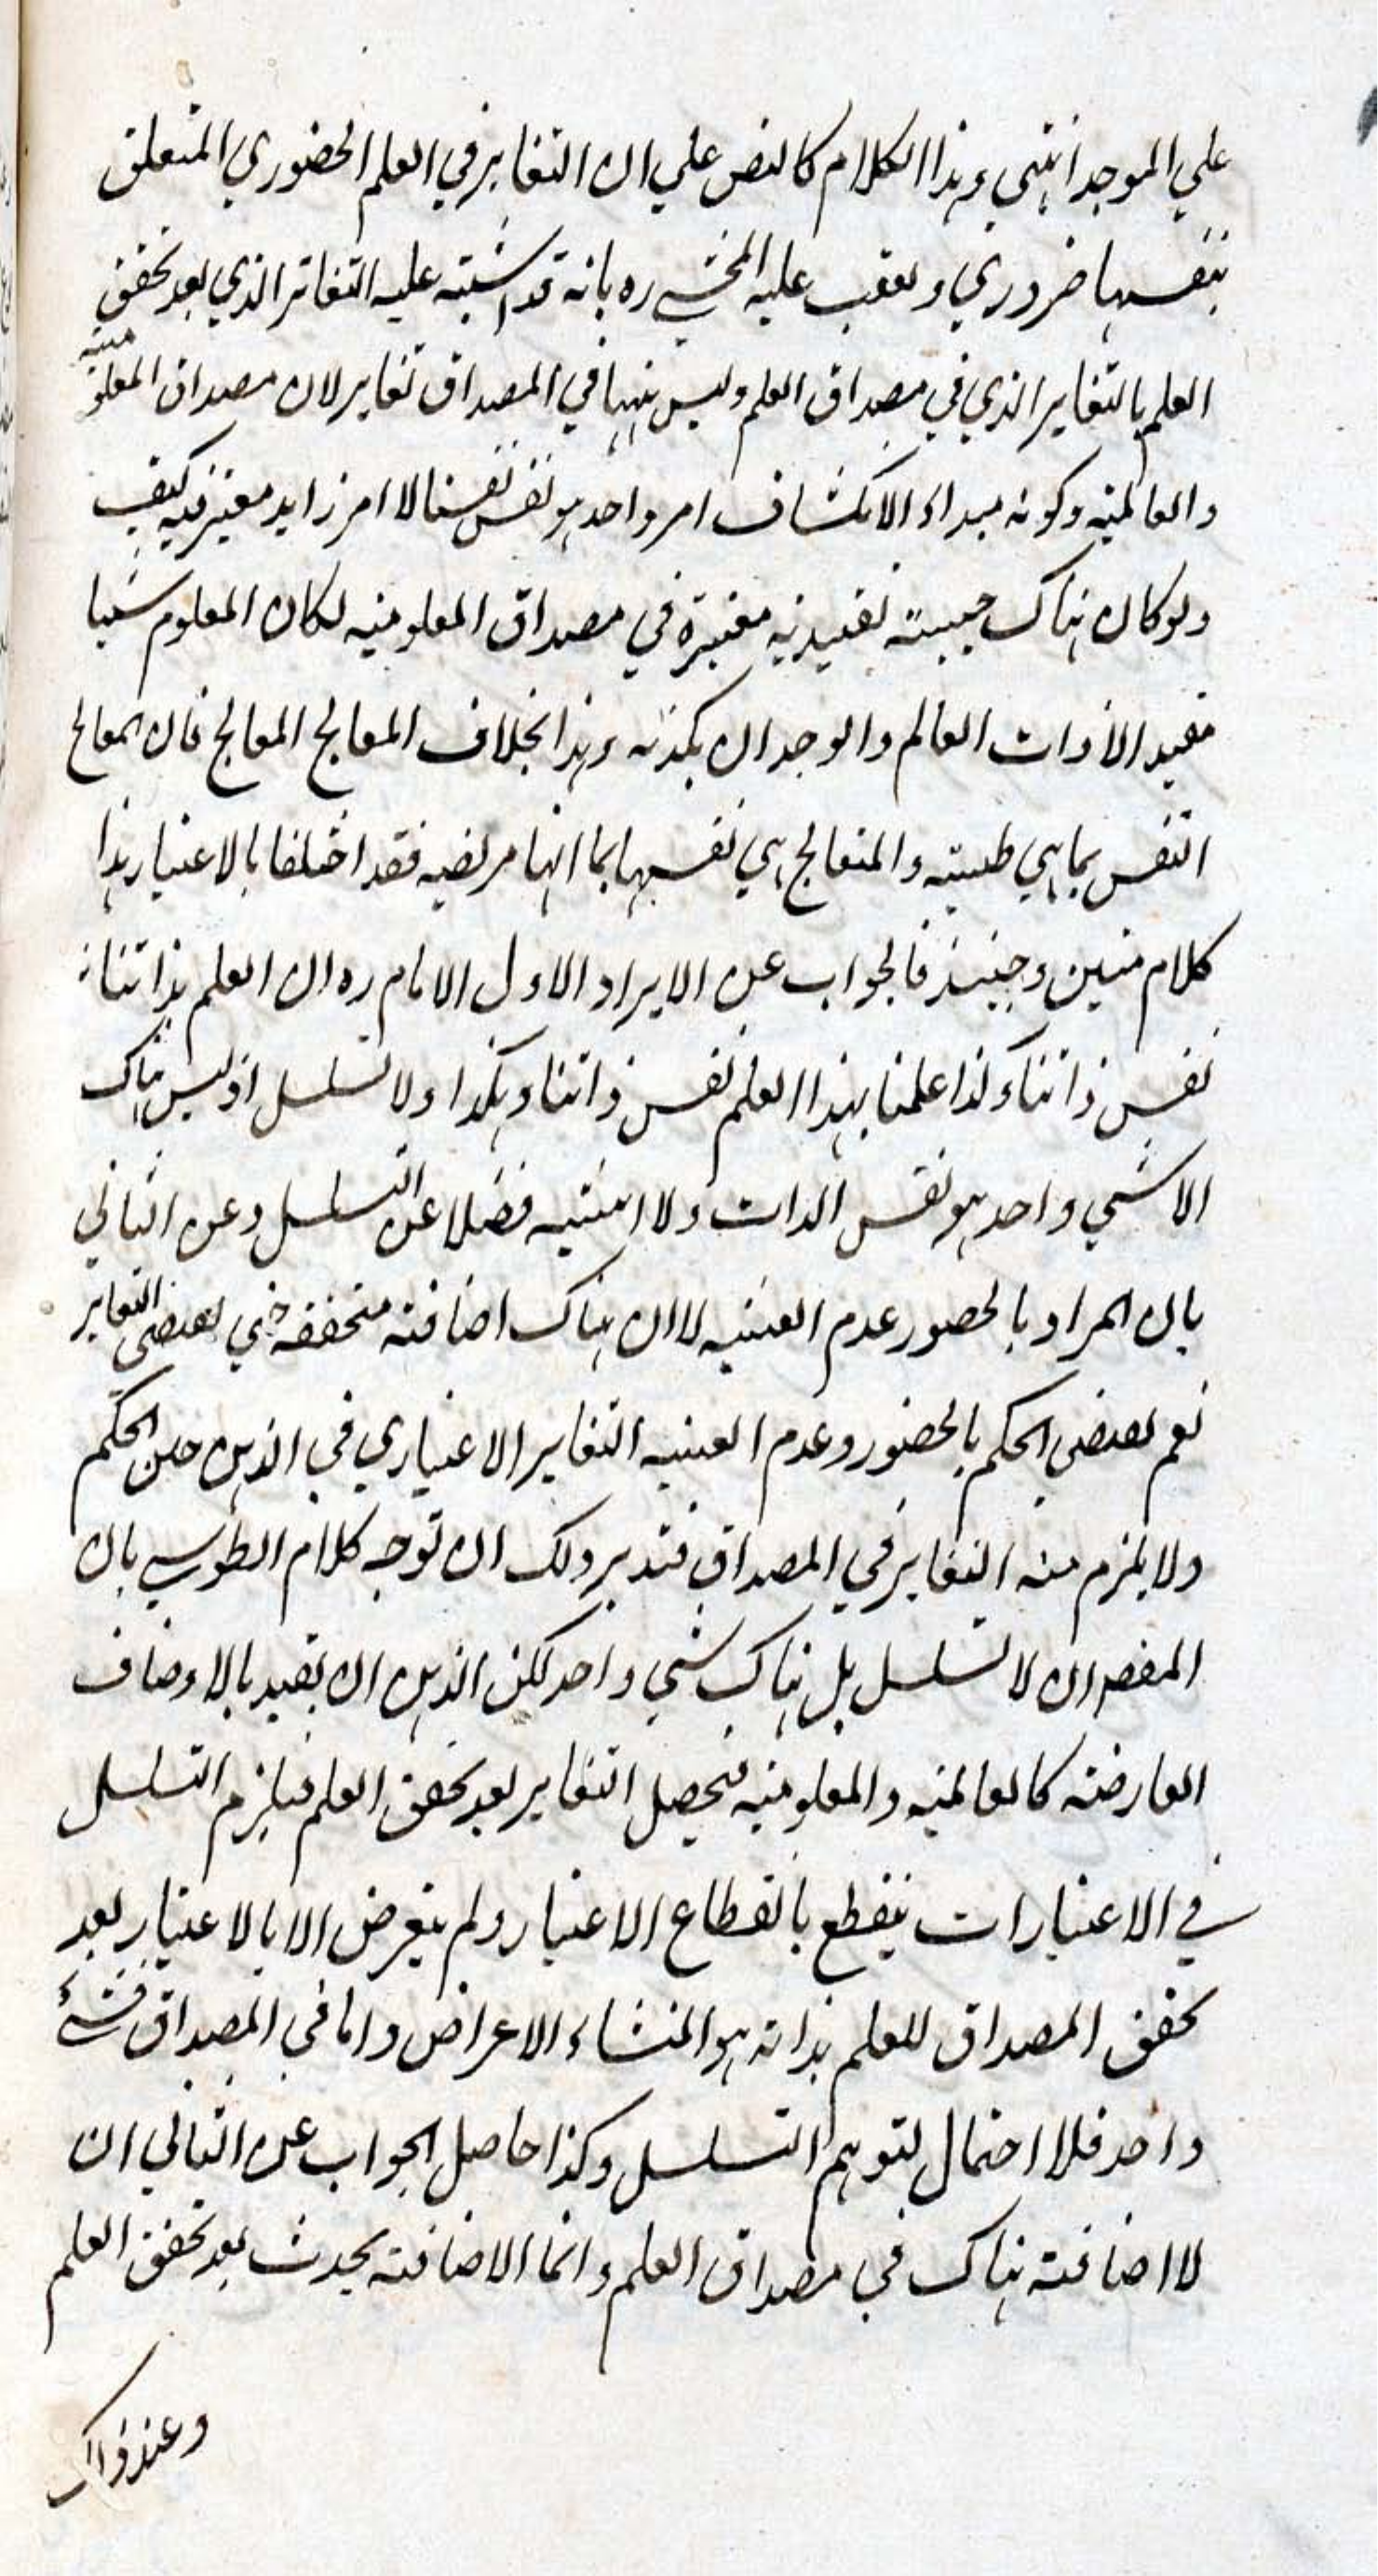 علي الموجد انتهي وهذا الكلام كالنص علي ان التغاير في العلم الحضوري المتعلق
بنفسها ضروري وتعقب عليه المحشي ره بانه قد اشتبه عليه التغاير الذي بعد تحقق
العلم بالتغاير الذي في مصداق العلم وليس بينهما في المصداق تغاير لان مصداق المعلومية
والعالمية وكونه مبداء الانكشاف امر واحد هو نفس نفسنا لا امر زايد معتبر فيه كيف
ولو كان هناك حيثية تقييدية معتبرة في مصداق المعلومية لكان المعلوم شيا
مقيد الا ذات العالم والوجدان يكذبه وهذا بخلاف المعالج المعالج فان المعالج
النفس بما هي طبيبة والمتعالج هي نفسها بما انها مريضة فقد اختلفا بالاعتبار هذا
كلام متين وحينئذ فالجواب عن الايراد الاول الامام ره ان العلم بذاتنا
نفس ذاتنا وكذا علمنا بهذا العلم نفس ذاتنا وهكذا ولا تسلسل اذ ليس هناك
الا شي واحد هو نفس الذات ولا اثنينية فضلا عن التسلسل وعن الثاني
بان المراد بالحضور عدم الغيبة لا ان هناك اضافة متحققة حتي يقتضي التغاير
نعم يقتضي الحكم بالحضور وعدم الغيبة التغاير الاعتباري في الذهن حين الحكم
ولا يلزم منه التغاير في المصداق فتدبر ولك ان توجه كلام الطوسي بان
المقصود ان لا تسلسل بل هناك شي واحد لكن الذهن ان يقيد بالاوصاف
العارضة كالعالمية والمعلومية فيحصل التغاير بعد تحقق العلم فيلزم التسلسل
في الاعتبارات ينقطع بانقطاع الاعتبار ولم يتعرض الا بالاعتبار بعد
تحقق المصداق للعلم بذاته هو المنشاء الاعراض واما في المصداق فشئ
واحد فلا احتمال لتوهم التسلسل وكذا حاصل الجواب عن الثاني ان
لا اضافة هناك في مصداق العلم وانما الاضافة يحدث بعد تحقق العلم
وعند ذاك